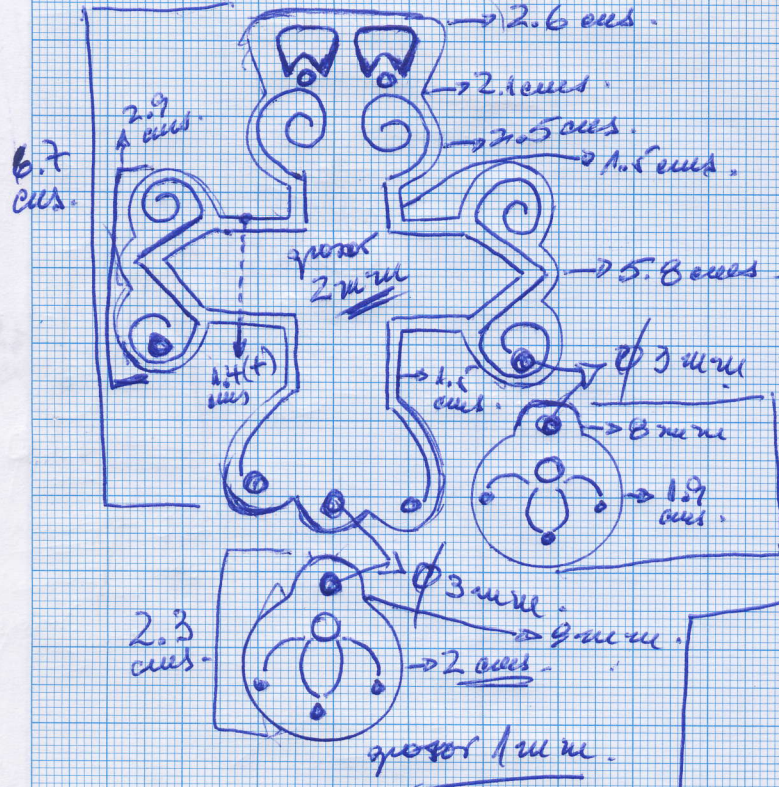 2.6 cms.
2.1 cms.
2.5 cms.
1.5 cms.
2.9
cms.
6.7
cms.
grosor
2 mm
5.8 cms
1.4(+)
cms
1.5
cms.
Ø 3 mm
8 mm
1.9
cms.
Ø 3 mm.
9 mm.
2.3
cms.
2 cms.
grosor 1 mm.